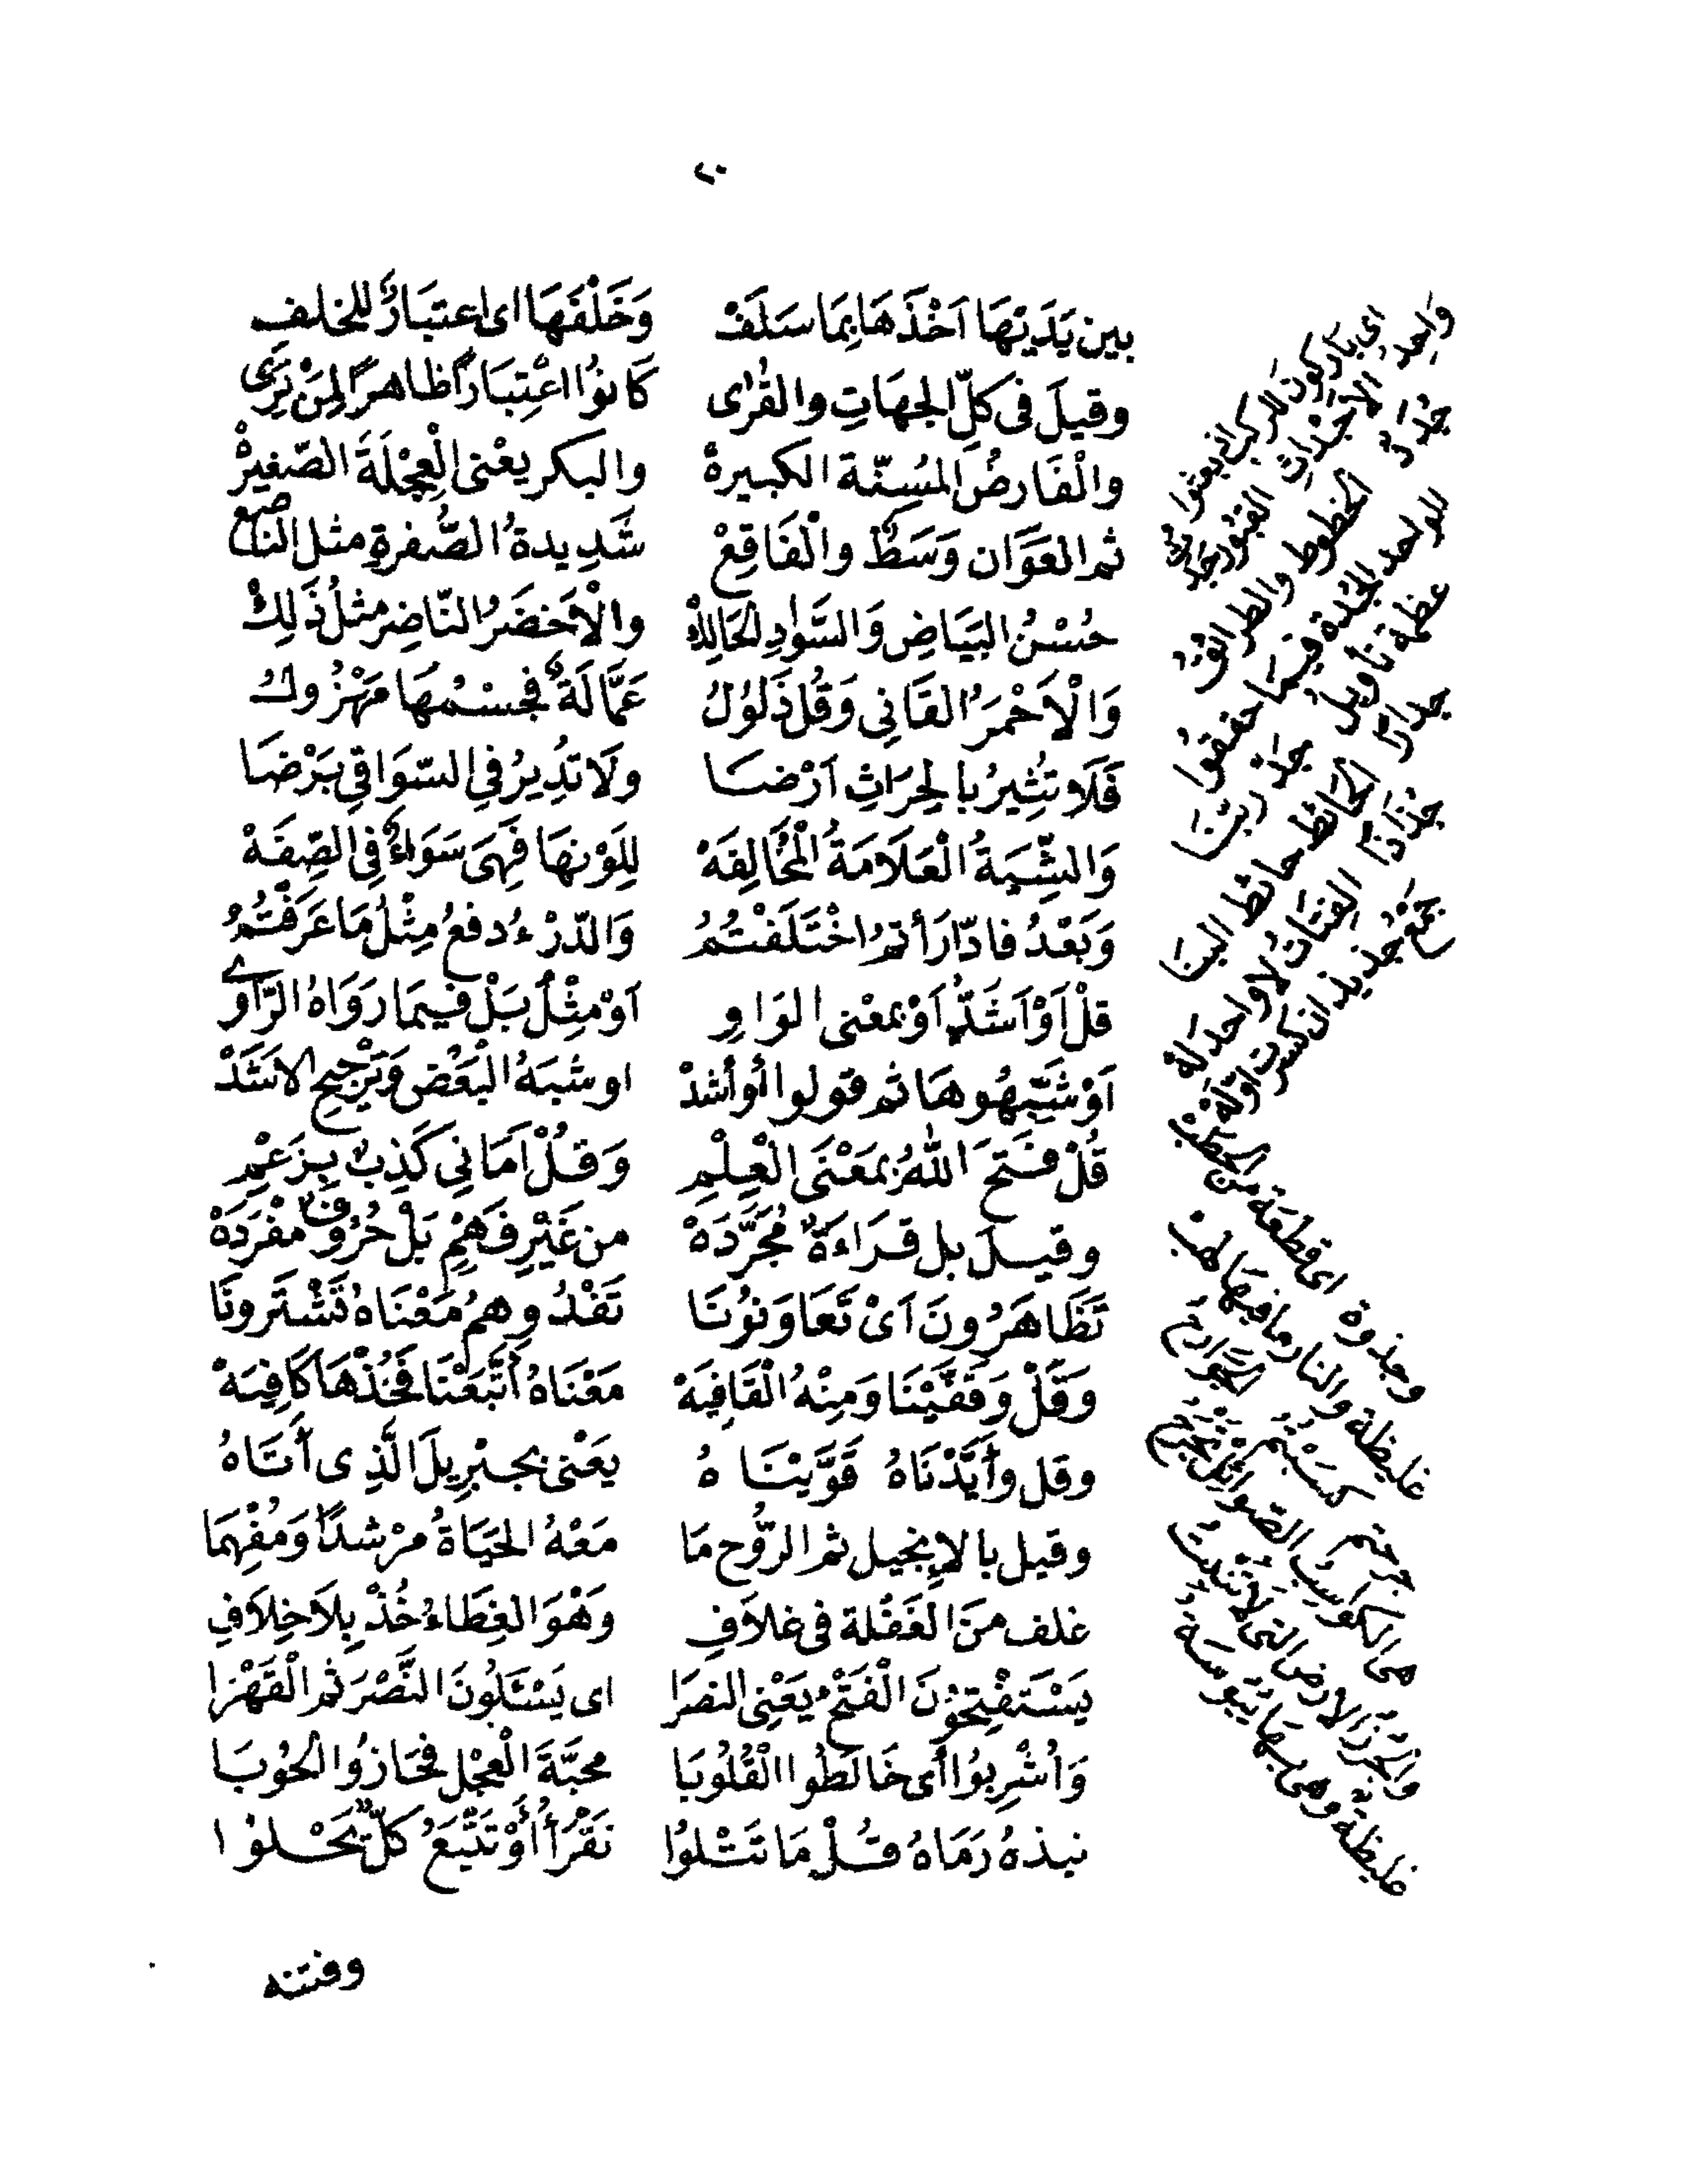 ٢٠
بين يَدَيْهَا اَخْذَهَا بِمَا سَلَفْ وَخَلْفَهَا اى اعتبَارٌ للخلف
وقيلَ فى كلّ الجهَاتِ والقُرٰى كَانوُا اعْتِبَاراً ظاهرًا لِمَنْ يَرَى
والْفَارضُ المُسِنّة الكبيرةْ والبكر يعْنى الْعِجْلَةَ الصّغيرْ
ثم العَوَان وَسَطٌ والْفَاقِعْ شَدِيدةُ الصُّفرةِ مثل الناصع
حُسْنُ البَيَاضِ وَالسَّوَادِ الحَالِكْ والْاَخضَرُ النّاضِر مثلُ ذَلِكْ
وَالْاَحْمَرُ القَانِى وَقُل ذَلوُلُ عَمَّالَةٌ فجسْمُهَا مَهْزُولُ
فَلَا تُثِيرُ بالحِرَاثِ اَرْضَا ولَا تدُيرُ فِي السّوَاقِي بَرْضَا
وَالشِّيَةُ الْعَلَامَةُ الْمُخَالِفَهْ لِلَوْنهَا فَهِىَ سَوَاءٌ فِي الصِّفَهْ
وَبَعْدُ فادّارَأتمُ اخْتَلَفْتُمُ وَالدّرْءُ دفعُ مِثْلُ مَا عَرَفْتُمُ
قلْ اَوْ اَشَدُّ اَوْ بمعْنى الوَاوِ اَوْ مِثْلُ بَلْ فيمَا رَوَاهُ الرَّاوي
اَوْ شَبِّهُوهَا ثم قولوا أو أشدْ او شبَهُ الْبَعْضِ وَيَرْجِحِ الاشَدْ
قُلْ فَتَحَ اللهُ بمَعْنَى الْعِلْمِ وَقُلْ اَمَانِي كَذِبٌ بِزَعْمِ
وقيلَ بل قراءَةٌ مُجَرَّدَهْ من غَيْرِ فَهْمٍ بَلْ حُرُوفٌ مُفْرَدَهْ
تَظَاهَرُونَ اَىْ تَعَاوَنوُنَا تَفْدُوهمُ مَعْنَاهُ تَشْتَرونَا
وَقُلْ وَقَفَّيْنَا وَمِنْهُ الْقَافِيَهْ مَعْنَاهُ أَتْبَعْنَا فَخُذْهَا كَافِيَهْ
وقل وأَيَّدْنَاهُ قَوَّيْنَاهُ يَعْنى بجبْرِيلَ الَّذِى أَتَاهُ
وقيل بالإِنجيل ثم الرُّوح مَا مَعْهُ الحَيَاةُ مرْشدًا وَمُفْهِمَا
غلف منَ الغَفْلة فى غلاَفِ وَهْوَ الغِطَاءُ خُذْ بِلاَ خِلاَفِ
يَسْتَفْتِحوُنَ الْفَتْحُ يَعْنِى النصرَا اى يَسْئَلُونَ النَّصْرَ ثم الْقَهْرَا
وَاُشْرِبوُا أَى خَالَطُوا الْقُلُوبَا محبَّةَ الْعِجْل فحَازوُا الحُوبَا
نبذهُ رَمَاهُ قُلْ مَا تَتْلوُا نَقْرَأُ أَوْ تَتَّبَعُ كلٌّ يَحْلوُا
وَاحِد الاجْدَاثِ القبُور
جُدَدٌ الخطوط والطرائقُ
عظمة تأويل جَدّ ربّنَا
جدَارًا الحَائط حائط البنَا
جُذَاذًا الفتَات لا واحدَ لهُ
جَمْعُ جذيذ ان كسرت اوّلَهْ
وجذوة اى قطعَة من الحطبْ
غليظة والنار مافيهَا لهبْ
جرحتم كسَبْتُم الجَوَارحُ
غليظَة وهى بهَا يبُوسَةُ
وفتنه